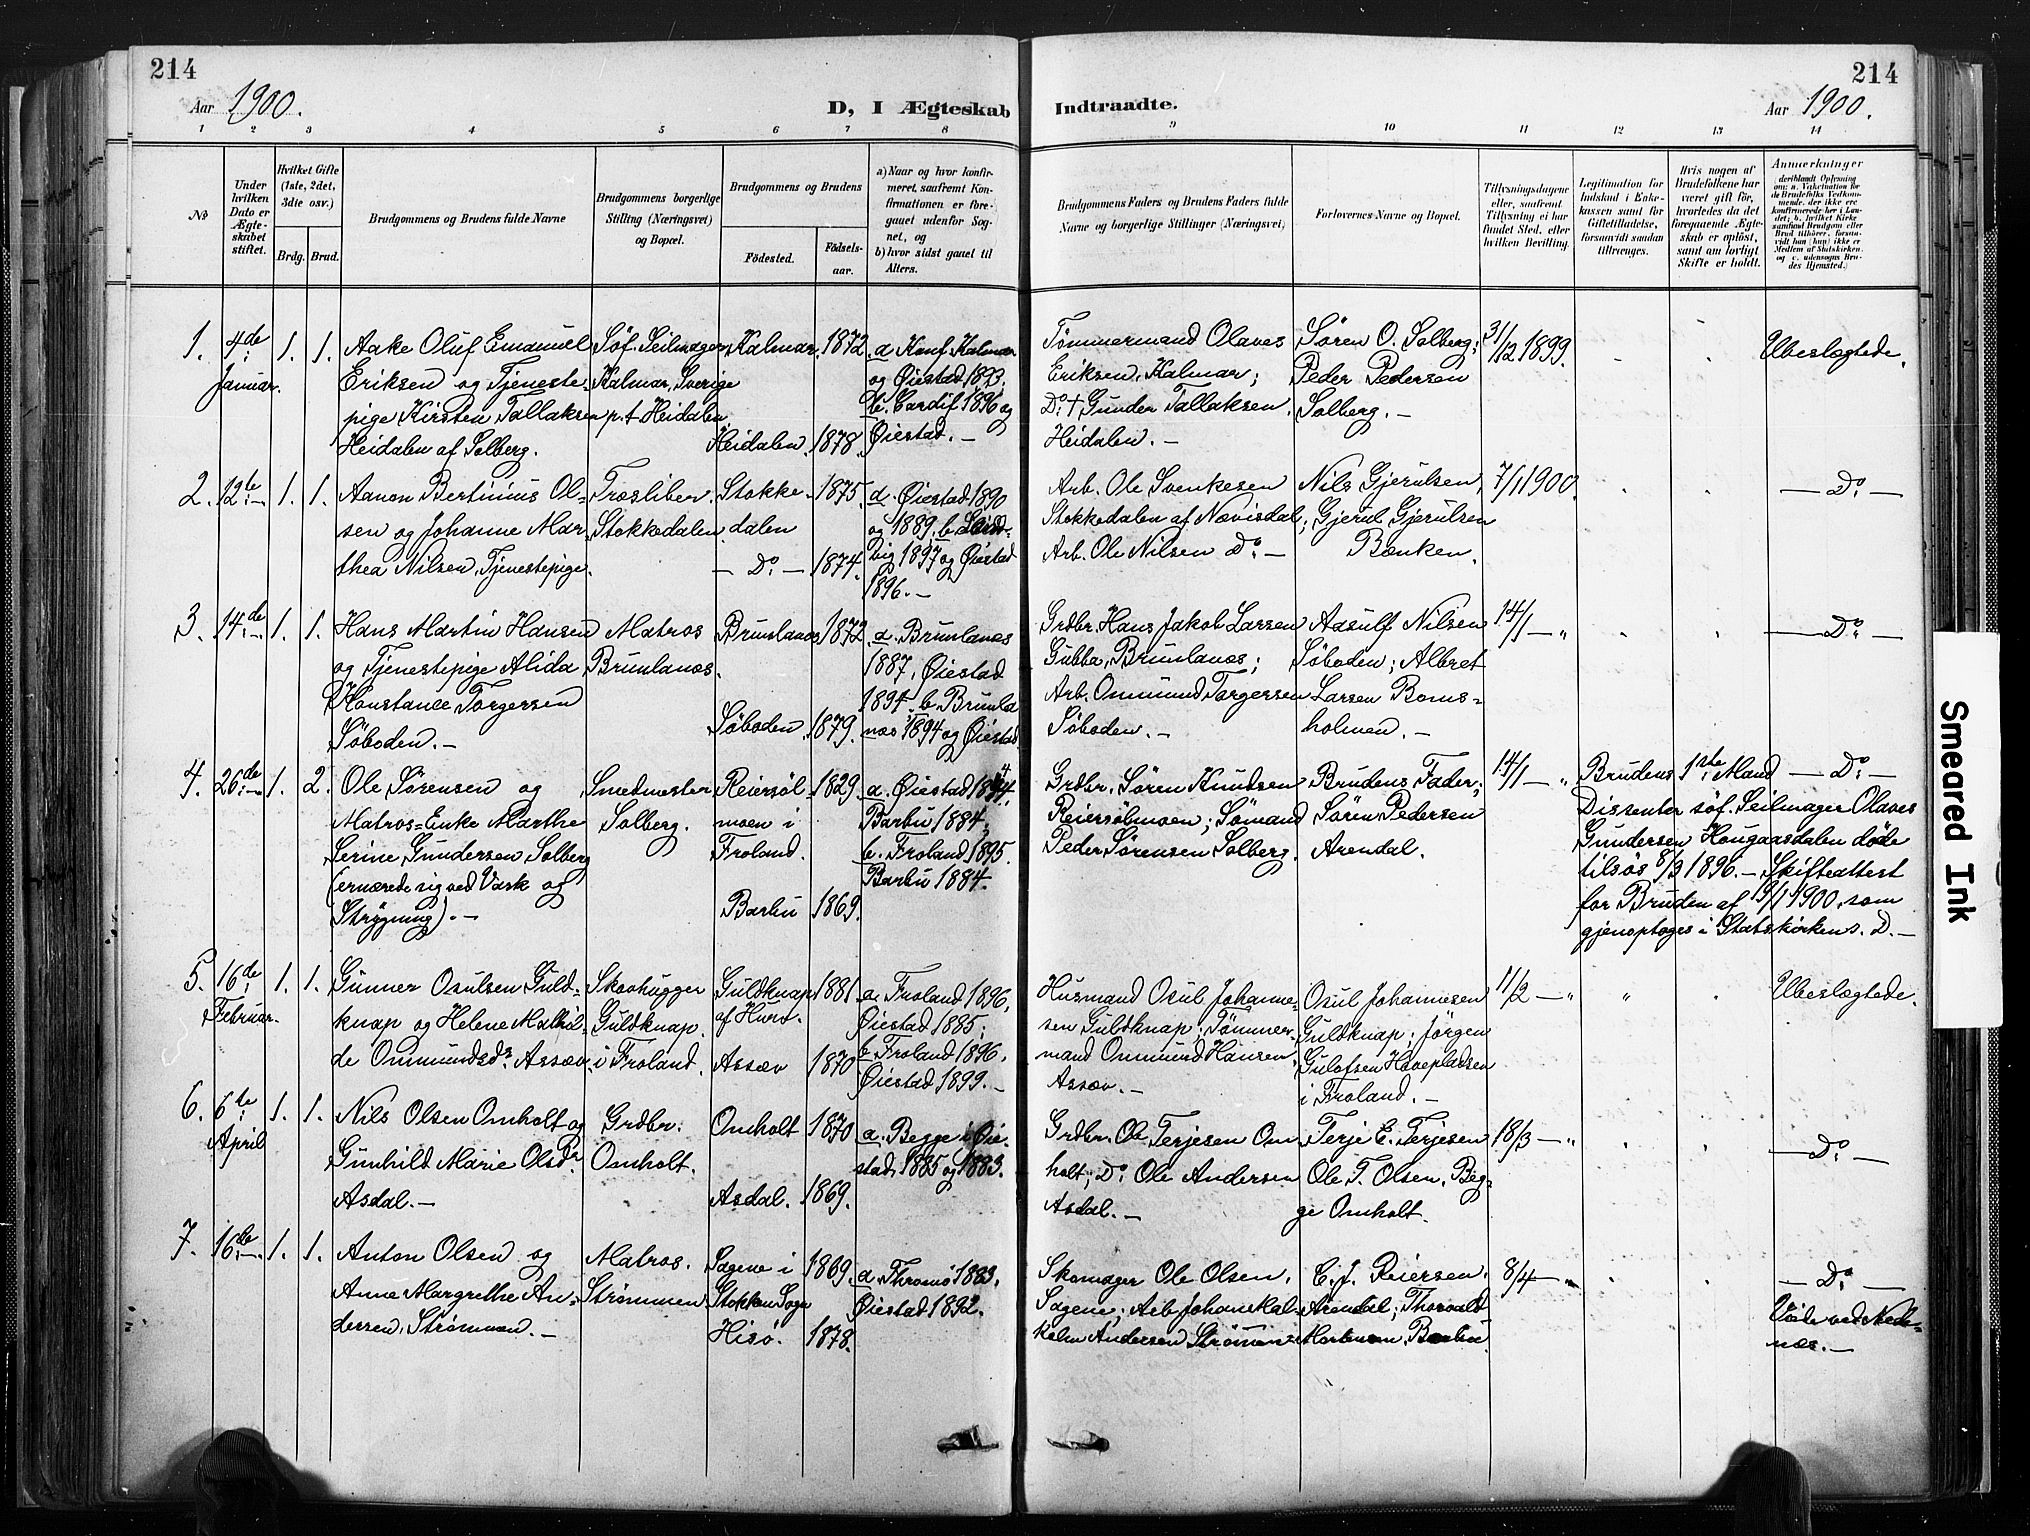 214
Aar 1900.
D, I Ægteskab
Indtraadte.
214
Aar 1900.
1 2 3 4 5 6 7 8
9 10 11 12 13 14
No
Under hvilken Dato er Ægteskabet stiftet.
Hvilket Gifte (1ste, 2det, 3die osv.)
Brdg. Brud.
Brudgommens og Brudens fulde Navne
Brudgommens borgerlige Stilling (Næringsvei) og Bopæl.
Brudgommens og Brudens
Födested.
Födselsaar.
a) Naar og hvor konfirmeret, saafremt Konfirmationen er foregaaet udenfor Sognet, og
b) hvor sidst gaaet til Alters.
Brudgommens Faders og Brudens Faders fulde Navne og borgerlige Stillinger (Næringsvei)
Forlovernes Navne og Bopæl.
Tillysningsdagene eller, saafremt Tillysning ei har fundet Sted, efter hvilken Bevilling.
Legitimation for Indskud i Enkekassen samt for Giftetilladelse, forsaavidt saadan tiltrænges.
Hvis nogen af Brudefolkene har været gift för, hvorledes da det foregaaende Ægteskab er oplöst, samt om lovligt Skifte er holdt.
Anmerkninger
deriblandt Oplysning om: a. Vakcination for de Brudefolks Vedkommende, der ikke ere konfirmerede her i Landet; b. hvilket Kirkesamfund Brudgom eller Brud tilhörer, forsaavidt han (hun) ikke er Medlem af Statskirken, og c. udensogns Brudes Hjemsted.)
1. 4de Januar. 1. 1.
Aake Oluf Emanuel
Eriksen og Tjeneste-
pige Kirsten Tallaksen
Heidalen af Solberg.
Söf. Seilmager
Kalmar, Sverige
p.t Heidalen
Kalmar. 1872.
Heidalen. 1878.
a. Konf. Kalmar
og Øiestad 1893.
b. Cardif 1896 og
Øiestad. —
Tømmermand Olaves
Eriksen, Kalmar;
Do. † Gunder Tallaksen.
Heidalen. —
Søren O. Solberg;
Peder Pedersen
Solberg. —
31/12 1899.
Ubeslægtede.
2. 12te — 1. 1.
Aanon Bertinius Ol-
sen og Johanne Mar-
thea Nilsen, Tjenestepige.
Træsliber.
Stokkedalen.
Stokke-
dalen 1875.
— Do. — 1874.
a. Øiestad 1890
og 1889. b.
vig 1897 og Øiestad
1896. —
Arb. Ole Svenkesen
Stokkedalen af Nævisdal;
Arb. Ole Nilsen Do. —
Nils Gjerulsen,
Gjerul Gjerulsen
Bænken.
7/1 1900.
— Do. —
3. 14de — 1. 1.
Hans Martin Hansen
og Tjenestepige Alida
Konstance Torgersen
Søboden. —
Matros
Brunlanæs.
Brunlanæs 1872.
Søboden. 1879.
a. Brunlanæs
1887, Øiestad
1894. b. Brunla-
næs 1894 og Øiestad
Grdbr. Hans Jakob Larsen
Gubba, Brunlanæs;
Arb. Ommund Torgersen
Søboden. —
Aasulf Nilsen
Søboden; Albret
Larsen Boms-
holmen. —
14/1 — "
— Do. —
4. 26de — 1. 2.
Ole Sørensen og
Matros-Enke Marthe
Serine Gundersen Solberg
(ernærede sig ved Vask og
Strygning). —
Smedmester
Solberg.
Reiersøl-
moen i
Froland. 1829.
Barbu 1869.
a. Øiestad 1844.
Barbu 1884.
b. Froland 1895.
Barbu 1884.
Grdbr. Søren Knudsen
Reiersølmoen; Sømand
Peder Sørensen Solberg.
Brudens Fader;
Søren Pedersen
Arendal.
14/1 — "
Brudens 1ste Mand — Do. —
Dissenter söf. Seilmager Olaves
Gundersen Hougaasdalen døde
tilsøs 8/3 1896. — Skifteattest
for Bruden af 19/1 1900, som
gjenoptages i Statskirken s. D. —
5. 16de Februar. 1. 1.
Gunner Osulsen Guld-
knap og Helene Mathil-
de Ommundsdr. Assæv.
Skovhugger
Guldknap.
i Froland.
Guldknap
af Hurv. 1881.
Assæv 1870
a. Froland 1896,
Øiestad 1885;
b. Froland 1896.
Øiestad 1899. —
Husmand Osul Johanne-
sen Guldknap; Tømmer-
mand Ommund Hansen
Assæv. —
Osul Johannesen
Guldknap; Jørgen
Gulofsen Havepladsen
i Froland. —
11/2 — "
"
Ubeslægtede.
6. 6te April 1. 1.
Nils Olsen Omholt og
Gunhild Marie Olsdr.
Asdal. —
Grdbr.
Omholt.
Omholt 1870
Asdal. 1869.
a. Begge i Øie-
stad, 1885 og 1883.
Grdbr. Ole Terjesen Om-
holt; Do. Ole Andersen
Asdal. —
Terje E. Terjesen
Ole T. Olsen, Beg-
ge Omholt.
18/3 — "
— Do. —
7. 16de — 1. 1.
Anton Olsen og
Anne Margrethe An-
dersen, Strømmen. —
Matros.
Strømmen
Sagene i
Stokken Sogn 1869.
Hisø. 1878.
a. Tromø 1883.
Øiestad 1892.
Skomager Ole Olsen,
Sagene; Arb. Johan Kal-
Andersen Strømmen
C. J. Reiersen.
Arendal; Thorvald
Mortensen Barbu.
8/4 — "
— Do. —
Viede ved Nede-
næs. —
Smeared Ink